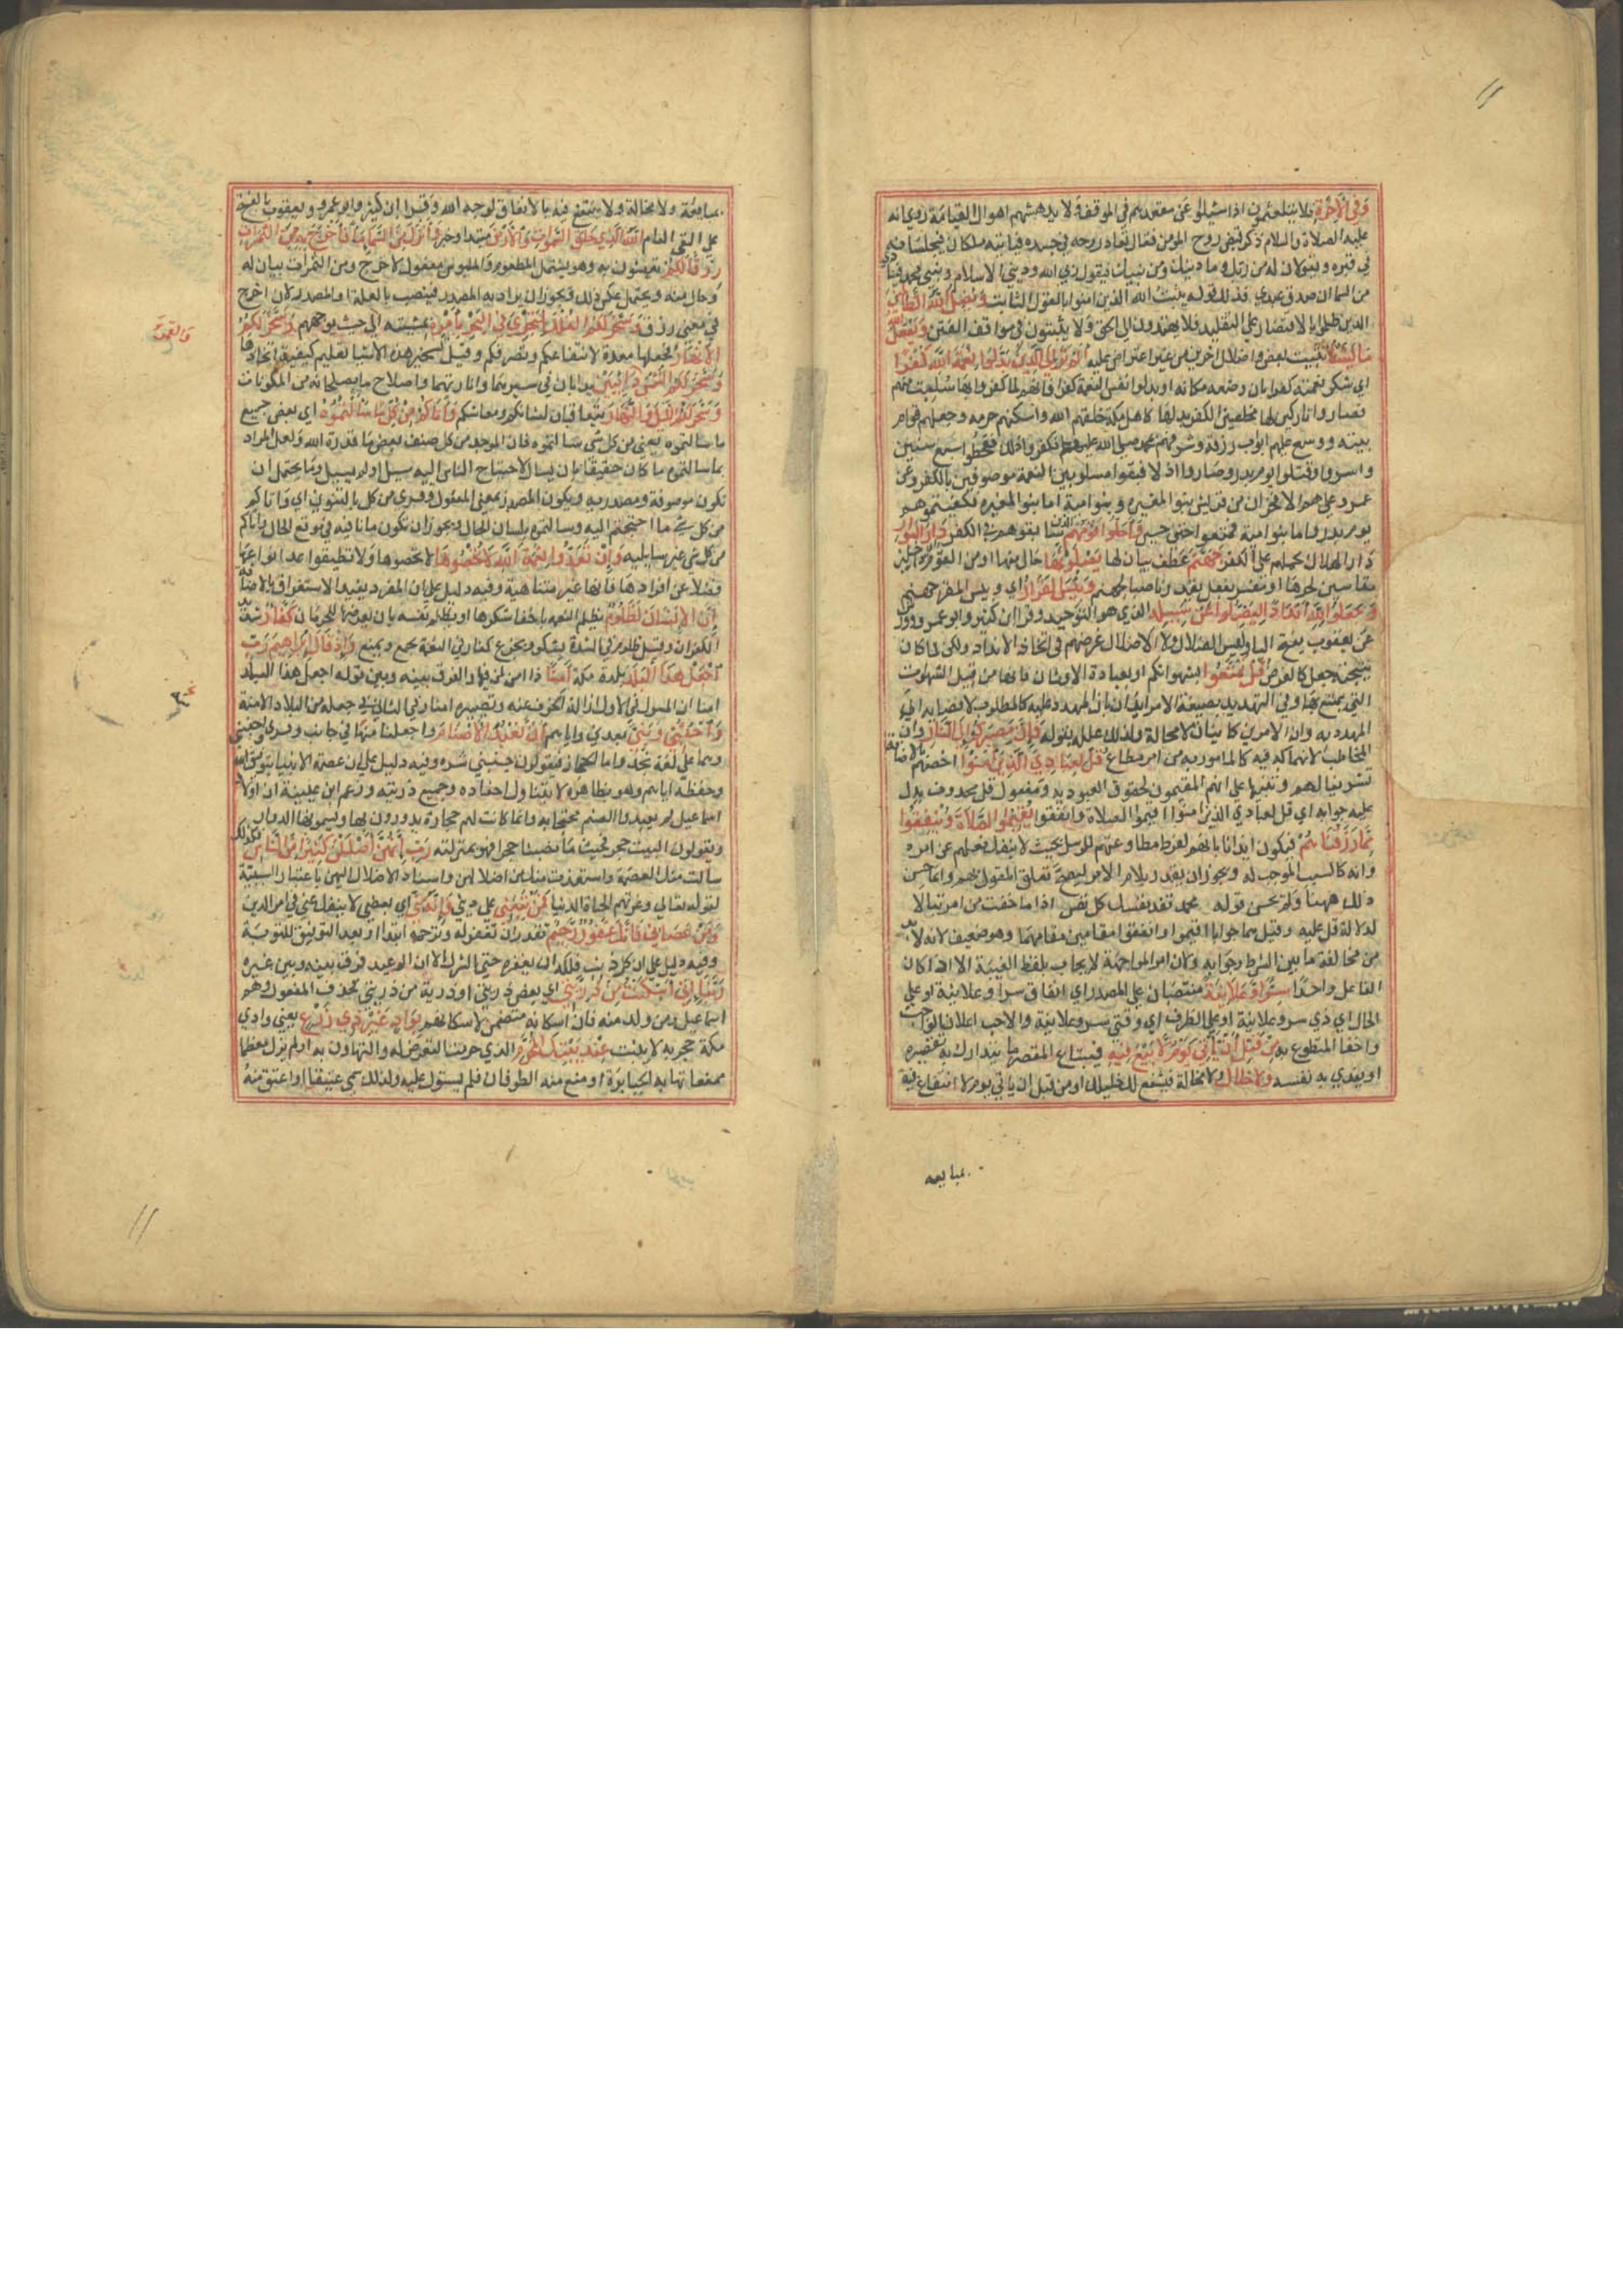 وفي الآخرة فلا يتلعثمون اذا سئلوا عن معتقدهم في الموقف ولا يدهشهم اهوال القيامة روي انه
عليه الصلاة والسلام ذكر قبض روح المؤمن فقال ثم تعاد روحه في جسده فياتيه ملكان فيجلسانه
في قبره ويقولان له من ربك وما دينك ومن نبيك فيقول ربي الله وديني الاسلام ونبيي محمد فينادي
من السما ان صدق عبدي فذلك قوله يثبت الله الذين امنوا بالقول الثابت ويضل الله الظالمين
الذين ظلموا بالاقتصار علي التقليد فلا يهتدون الي الحق ولا يثبتون في مواقف الفتن ويفعل الله
ما يشاء من تثبيت بعض واضلال اخرين من غير اعتراض عليه الم تر الي الذين بدلوا نعمة الله كفرا
اي شكر نعمته كفرا بان وضعوه مكانه او بدلوا نفس النعمة كفرا فانهم لما كفروها سلبت منهم
فصاروا تاركين لها محصلين الكفر بدلها كاهل مكة خلقهم الله واسكنهم حرمه وجعلهم قوام
بيته ووسع عليهم ابواب رزقه وشرفهم بمحمد صلي الله عليه وسلم فكفروا ذلك فقحطوا سبع سنين
واسروا وقتلوا يوم بدر وصاروا اذلا فبقوا مسلوبين النعمة موصوفين بالكفر وعن
عمر وعلي هم الافجران من قريش بنو المغيره وبنو امية اما بنو المغيره فكفيتموهم
يوم بدر واما بنو امية فمتعوا حتي حين واحلوا قومهم الذين شايعوهم في الكفر دار البوار
دار الهلاك بحملهم علي الكفر جهنم عطف بيان لها يصلونها حال منها او من القوم اي داخلين
مقاسين لحرها او مفسر لفعل يقدر ناصبا لجهنم وبئس القرار اي وبيس المقر جهنم
وجعلوا لله اندادا ليضلوا عن سبيله الذي هو التوحيد وقرا ابن كثير وابو عمرو ورويس
عن يعقوب بفتح اليا وليس الضلال ولا الاضلال غرضهم في اتخاذ الانداد ولكن لما كان
نتيجته جعل كالغرض قل تمتعوا بشهواتكم او بعبادة الاوثان فانها من قبيل الشهوات
التي يتمتع بها وفي التهديد بصيغة الامر ايذان بان المهدد عليه كالمطلوب لافضايه الي
المهدد به وان الامرين كاينان لا محالة ولذلك علله بقوله فان مصيركم الي النار وان
المخاطب لانهماكه فيه كالمامور به من امر مطاع قل لعبادي الذين امنوا اخصهم بالاضافة
تشريفا لهم وتنبيها علي انهم المقيمون لحقوق العبودية ومفعول قل محذوف يدل
عليه جوابه اي قل لعبادي الذين امنوا اقيموا الصلاة وانفقوا يقيموا الصلاة وينفقوا
مما رزقناهم فيكون ايذانا بانهم لفرط مطاوعتهم للرسل بحيث لا ينفك فعلهم عن امره
وانه كالسبب الموجب له ويجوز ان يقدر بلام الامر ليصح تعلق القول بهم وانما حسن
ذلك ههنا ولم يحسن قوله محمد تفد نفسك كل نفس اذا ما خفت من امر تبالا
لدلالة قل عليه وقيل هما جوابا اقيموا وانفقوا مقامين مقامهما وهو ضعيف لانه لا بد
من مخالفة ما بين الشرط وجوابه ولان امر المواجهة لا يجاب بلفظ الغيبة الا اذا كان
الفاعل واحدا سرا وعلانية منتصبان علي المصدر اي انفاق سر وعلانية او علي
الحال اي ذي سر وعلانية او علي الظرف اي وقتي سر وعلانية والاحب اعلان الواجب
واخفا المتطوع به من قبل ان ياتي يوم لا بيع فيه فيبتاع المقصر ما يتدارك به تقصيره
او يفدي به نفسه ولا خلال ولا مخالة فيشفع لك خليل او من قبل ان ياتي يوم لا انتفاع فيه
بمبايعه
بمبايعة ولا مخالة ولا ينتفع فيه بالانفاق لوجه الله وقرا ابن كثير وابو عمرو ويعقوب بالفتح
علي النفي العام الله الذي خلق السموات والارض مبتدا وخبر وانزل من السماء ماء فاخرج به من الثمرات
رزقا لكم تعيشون به وهو يشتمل المطعوم والملبوس مفعول لاخرج ومن الثمرات بيان له
وحال منه ويحتمل عكس ذلك ويجوز ان يراد به المصدر فينصب بالعلة او المصدر لان اخرج
في معني رزق وسخر لكم الفلك لتجري في البحر بامره بمشيته الي حيث توجهتم وسخر لكم
الانهار فجعلها معدة لانتفاعكم وتصرفكم وقيل تسخير هذه الاشيا تعليم كيفية اتخاذها
وسخر لكم الشمس والقمر دائبين يدابان في سيرهما وانارتهما واصلاح ما يصلحانه من المكونات
وسخر لكم الليل والنهار يتعاقبان لسباتكم ومعاشكم واتاكم من كل ما سالتموه اي بعض جميع
ما سالتموه يعني من كل شي سالتموه فان الموجود من كل صنف بعض ما قدرة الله ولعل المراد
بما سالتموه ما كان حقيقا بان يسال لاحتياج الناس اليه سيل او لم يسيل وما يحتمل ان
تكون موصوفة ومصدرية ويكون المصدر بمعني المفعول وقري من كل بالتنوين اي واتاكم
من كل شي ما احتجتم اليه وسالتموه بلسان الحال ويجوز ان تكون ما نافيه في موقع الحال اي واتاكم
من كل شي غير سايليه وان تعدوا نعمة الله لا تحصوها لا تحصروها ولا تطيقوا عد انواعها
فضلا عن افرادها فانها غير متناهية وفيه دليل علي ان المفرد يفيد الاستغراق بالاضافة
ان الانسان لظلوم يظلم النعمة باغفال شكرها او يظلم نفسه بان يعرضها للحرمان كفار شديد
الكفران وقيل ظلوم في الشدة يشكو ويجزع كفار في النعمة يجمع ويمنع واذ قال ابراهيم رب
اجعل هذا البلد بلدة مكة امنا ذا امن لمن فيها والفرق بينه وبين قوله اجعل هذا البلد
امنا ان المسول في الاول ازالة الخوف عنه وتصييره امنا وفي الثاني جعله من البلاد الامنة
واجنبني وبني بعدني واياهم ان نعبد الاصنام واجعلنا منها في جانب وقري واجنبني
وهما علي لغة نجد واما الحجاز فيقولون جنبني شره وفيه دليل علي ان عصمة الانبيا بتوفيق الله
وحفظه اياهم وهو بظاهره لا يتناول احفاده وجميع ذريته وزعم ابن عيينة ان اولاد
اسماعيل لم يعبدوا الصنم محتجا به وانما كانت لهم حجارة يدورون بها ويسمونها الدوار
ويقولون البيت حجر فحيث ما نصبنا حجرا فهو بمنزلته رب انهن اضللن كثيرا من الناس فلذلك
سالت منك العصمة واستعذت بك من اضلالهن واسناد الاضلال اليهن باعتبار السببية
لقوله تعالي وغرتهم الحياة الدنيا فمن تبعني علي ديني فانه مني اي بعضي لا ينفك عني في امر الدين
ومن عصاني فانك غفور رحيم تقدر ان تغفر له وترحمه ابتدا او بعد التوفيق للتوبة
وفيه دليل علي ان كل ذنب فلله ان يغفره حتي الشرك الا ان الوعيد فرق بينه وبين غيره
ربنا اني اسكنت من ذريتي اي بعض ذريتي او ذرية من ذريتي فحذف المفعول وهم
اسماعيل ومن ولد منه فان اسكانه متضمن لاسكانهم بواد غير ذي زرع يعني وادي
مكة حجرية لا ينبت عند بيتك المحرم الذي حرمت التعرض له والتهاون به او لم يزل معظما
ممنعا تهابه الجبابرة او منع منه الطوفان فلم يستول عليه ولذلك سمي عتيقا اي اعتق منه